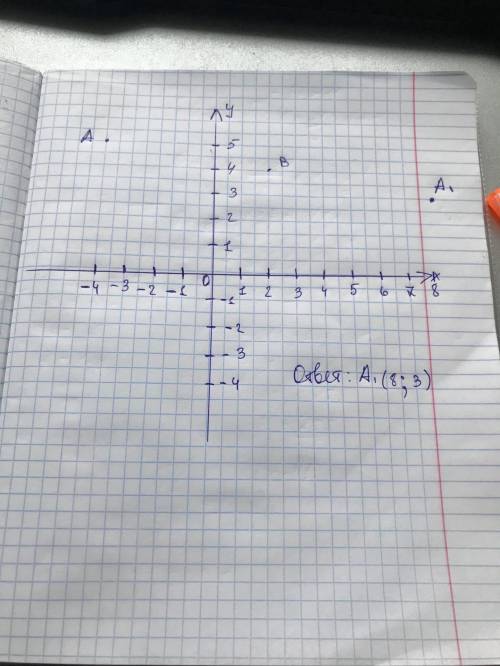 y
A
5
B
4
A₁
3
2
1
-4 -3 -2 -1 0 1 2 3 4 5 6 7 8 x
-1
-2
-3
Ответ: A₁(8;3)
-4